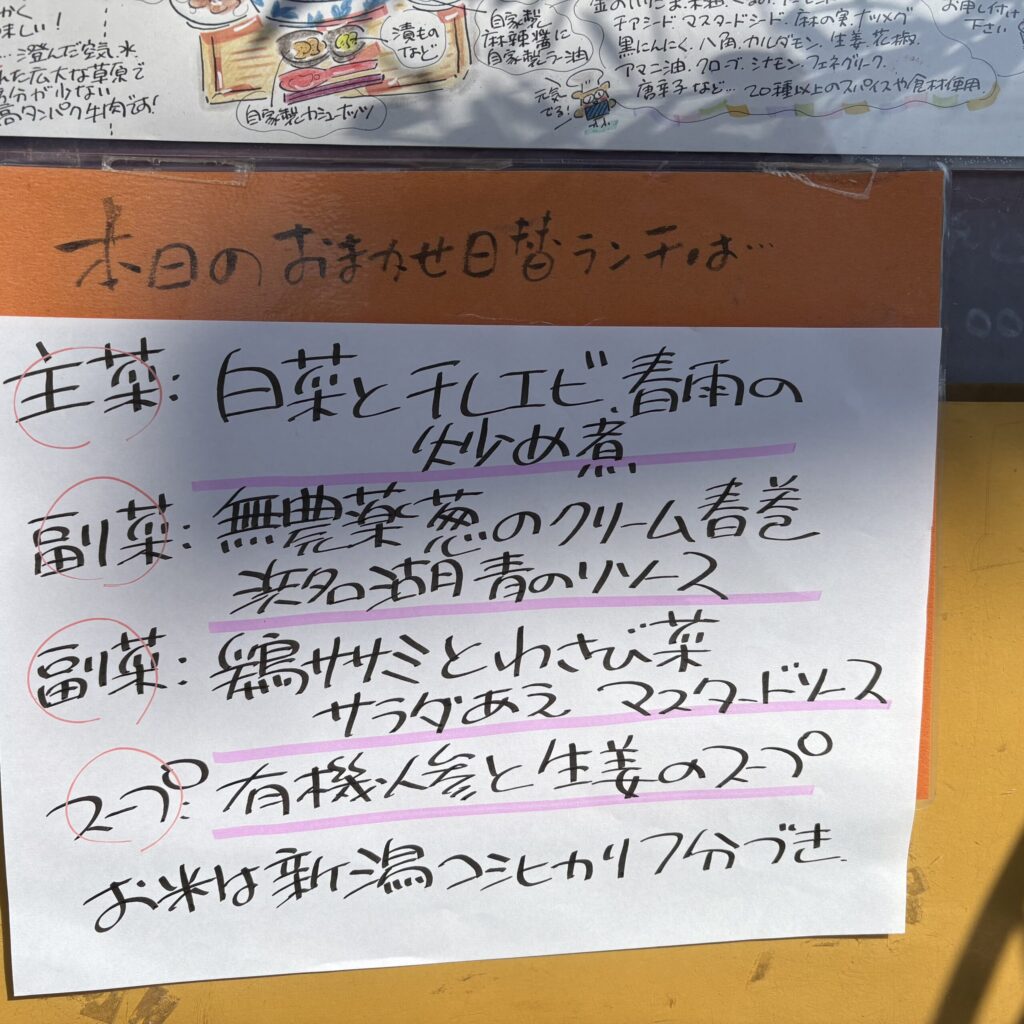 かく
味しい!
…澄んだ空気
れた広大な草原で
脂分が少ない
高タンパク牛肉です!
漬もの
など
自家製カシューナッツ
自家製
麻辣醤に
自家製ラー油
元気
でる!
チアシード マスタードシード、麻の実、ナツメグ
黒にんにく、八角、カルダモン、生姜、花椒、
アマニ油、クローブ、シナモン、フェネグリーク、
唐辛子など… 20種以上のスパイスや食材使用
お申し付け
下さい
本日のおまかせ日替ランチは…
主菜: 白菜と干しエビ、春雨の
炒め煮
副菜: 無農薬葱のクリーム春巻
浜名湖青のりソース
副菜: 鶏ササミとわさび菜
サラダあえ マスタードソース
スープ: 有機人参と生姜のスープ
お米は新潟コシヒカリ7分づき